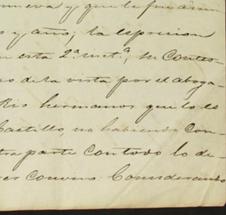 nueva y, que le fue asim
s y, año; la esposicion
en esta 2.ª inst.ª, su contes-
so de la vista por el aboga-
Rio hermanos que lo es
Castillo, no habiendo con-
tra parte con todo lo de-
ver convino Considerando